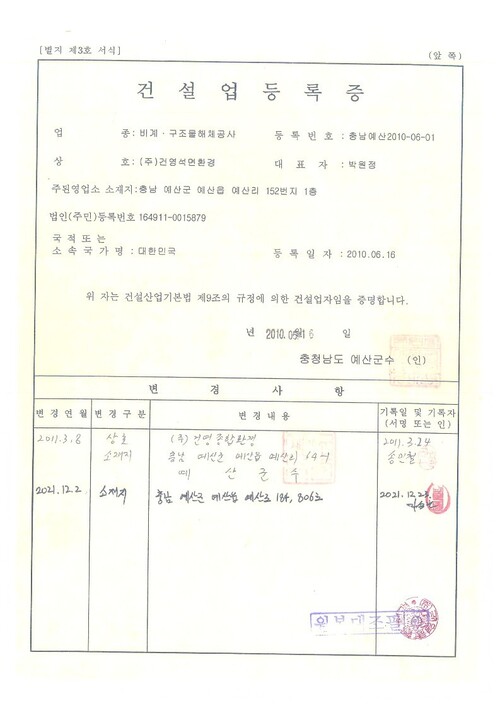 [별지 제3호 서식]
(앞 쪽)
건 설 업 등 록 증
업 종: 비계·구조물해체공사
등 록 번 호 : 충남예산2010-06-01
상 호: (주)건영석면환경
대 표 자 : 박원정
주된영업소 소재지:충남 예산군 예산읍 예산리 152번지 1층
법인(주민)등록번호 164911-0015879
국 적 또 는
소 속 국 가 명 : 대한민국
등 록 일 자 : 2010.06.16
위 자는 건설산업기본법 제9조의 규정에 의한 건설업자임을 증명합니다.
년 2010. 월16 일
충청남도 예산군수 (인)
변 경 사 항
변 경 연 월 변 경 구 분 변 경 내 용 기록일 및 기록자
(서명 또는 인)
2011.3.8 상호 (주)건영종합환경 2011.3.24
소재지 충남 예산군 예산읍 예산리 64-1 송인철
예 산 군 수
2021.12.2. 소재지 충남 예산군 예산읍 예산로 184, 806호 2021.12.23.
원본대조필